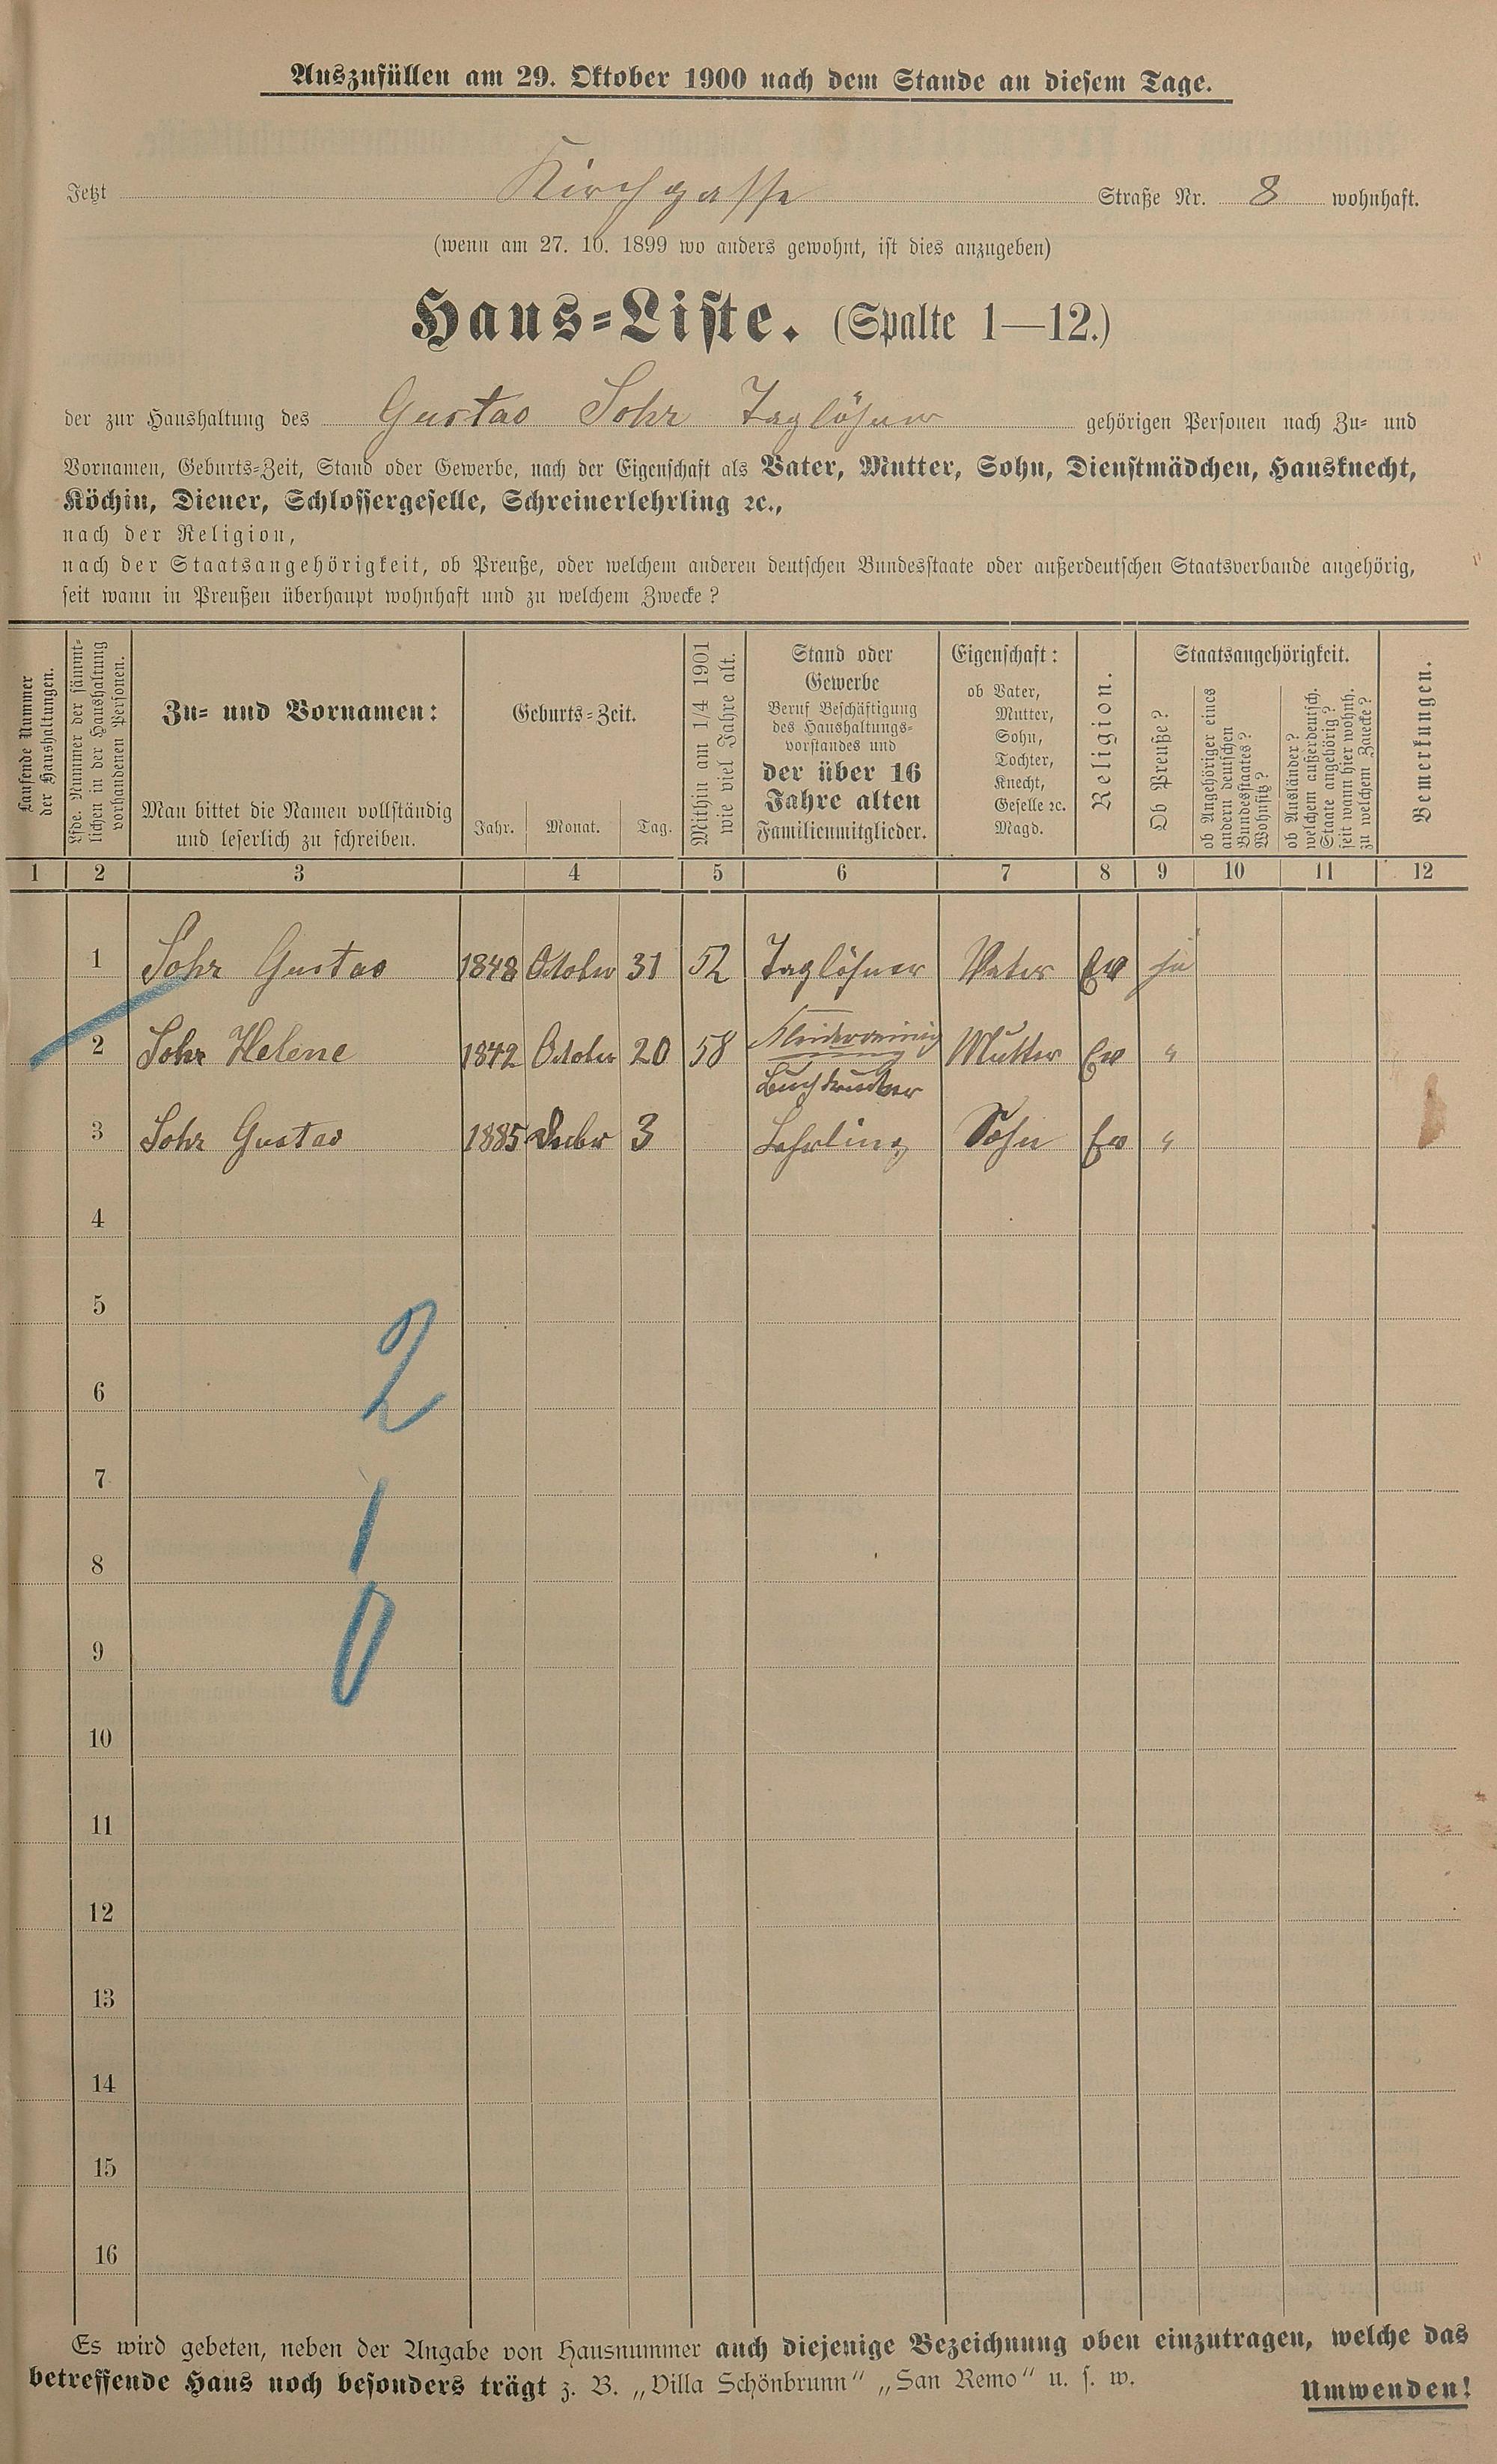 Auszufüllen am 29. Oktober 1900 nach dem Stande an diesem Tage.
Jetzt Kirchgasse Straße Nr. 8 wohnhaft.
(wenn am 27. 10. 1899 wo anders gewohnt, ist dies anzugeben)
Haus-Liste. (Spalte 1—12.)
der zur Haushaltung des Gustav Sohr Taglöhner gehörigen Personen nach Zu- und
Vornamen, Geburts-Zeit, Stand oder Gewerbe, nach der Eigenschaft als Vater, Mutter, Sohn, Dienstmädchen, Hausknecht,
Köchin, Diener, Schlossergeselle, Schreinerlehrling ꝛc.,
nach der Religion,
nach der Staatsangehörigkeit, ob Preuße, oder welchem anderen deutschen Bundesstaate oder außerdeutschen Staatsverbande angehörig,
seit wann in Preußen überhaupt wohnhaft und zu welchem Zwecke?
Laufende Nummer
der Haushaltungen.
Lfde. Nummer der sämmt-
lichen in der Haushaltung
vorhandenen Personen.
Zu- und Vornamen:
Man bittet die Namen vollständig
und leserlich zu schreiben.
Geburts-Zeit.
Jahr. Monat. Tag.
Mithin am 1/4 1901
wie viel Jahre alt.
Stand oder
Gewerbe
Beruf Beschäftigung
des Haushaltungs-
vorstandes und
der über 16
Jahre alten
Familienmitglieder.
Eigenschaft:
ob Vater,
Mutter,
Sohn,
Tochter,
Knecht,
Geselle ꝛc.
Magd.
Religion.
Staatsangehörigkeit.
Ob Preuße?
ob Angehöriger eines
andern deutschen
Bundesstaates?
Wohnsitz?
ob Ausländer?
welchem außerdeutsch.
Staate angehörig?
seit wann hier wohnh.
zu welchem Zwecke?
Bemerkungen.
1 2 3 4 5 6 7 8 9 10 11 12
1 Sohr Gustav 1848 October 31 52 Taglöhner Vater Ev ja
2 Sohr Helene 1842 October 20 58 Mutter Ev "
Buchdrucker
3 Sohr Gustav 1885 Decbr 3 Lehrling Sohn Ev "
4
5
6
2
7
1
8
9
0
10
11
12
13
14
15
16
Es wird gebeten, neben der Angabe von Hausnummer auch diejenige Bezeichnung oben einzutragen, welche das
betreffende Haus noch besonders trägt z. B. „Villa Schönbrunn“ „San Remo“ u. s. w.
Umwenden!